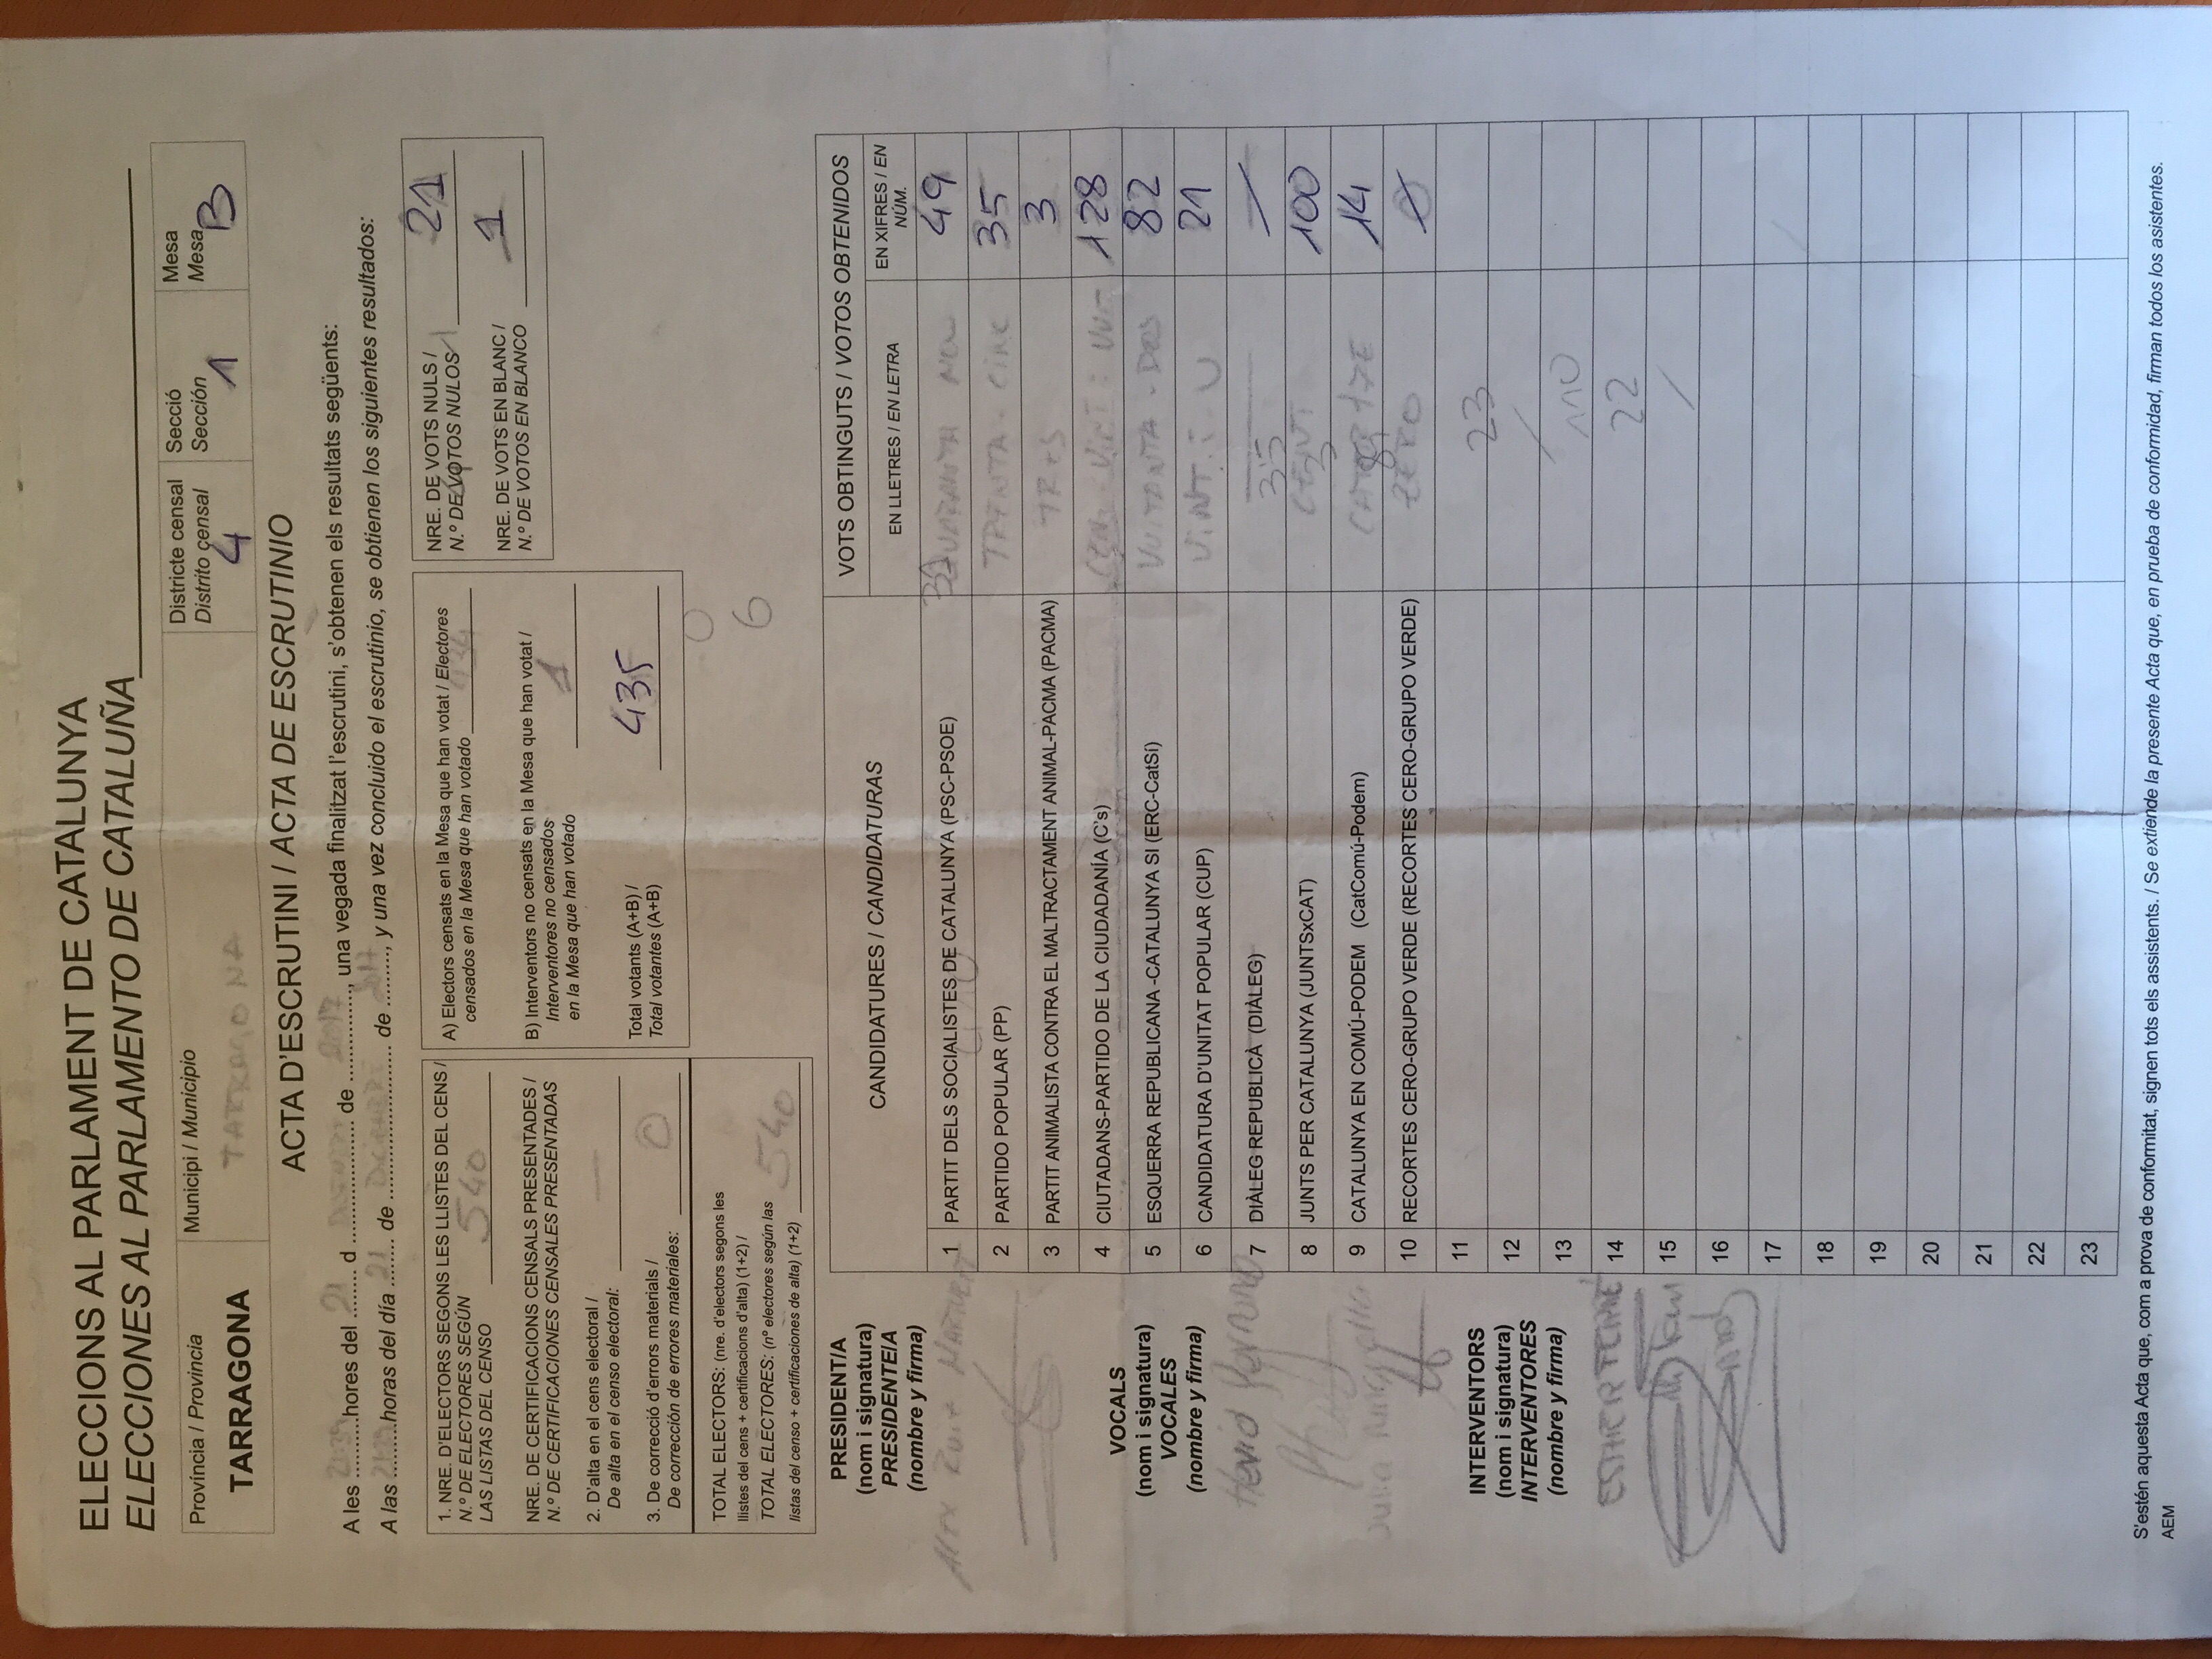 ELECCIONS AL PARLAMENT DE CATALUNYA
ELECCIONES AL PARLAMENTO DE CATALUÑA
Província / Provincia
TARRAGONA
Municipi / Municipio
TARRAGONA
Districte censal
Distrito censal
4
Secció
Sección
1
Mesa
Mesa
B
ACTA D'ESCRUTINI / ACTA DE ESCRUTINIO
A les 21:39 hores del 21 d de 2017, una vegada finalitzat l'escrutini, s'obtenen els resultats següents:
A las 21:39 horas del día 21 de de 2017, y una vez concluido el escrutinio, se obtienen los siguientes resultados:
1. NRE. D'ELECTORS SEGONS LES LLISTES DEL CENS /
N.º DE ELECTORES SEGÚN
LAS LISTAS DEL CENSO 540
NRE. DE CERTIFICACIONS CENSALS PRESENTADES /
N.º DE CERTIFICACIONES CENSALES PRESENTADAS
2. D'alta en el cens electoral /
De alta en el censo electoral: —
3. De correcció d'errors materials /
De corrección de errores materiales: 0
TOTAL ELECTORS: (nre. d'electors segons les
llistes del cens + certificacions d'alta) (1+2) /
TOTAL ELECTORES: (nº electores según las
listas del censo + certificaciones de alta) (1+2) 540
A) Electors censats en la Mesa que han votat / Electores
censados en la Mesa que han votado 434
B) Interventors no censats en la Mesa que han votat /
Interventores no censados
en la Mesa que han votado 1
Total votants (A+B) /
Total votantes (A+B) 435
NRE. DE VOTS NULS /
N.º DE VOTOS NULOS 21
NRE. DE VOTS EN BLANC /
N.º DE VOTOS EN BLANCO 1
0
6
PRESIDENT/A
(nom i signatura)
PRESIDENTE/A
(nombre y firma)
VOCALS
(nom i signatura)
VOCALES
(nombre y firma)
INTERVENTORS
(nom i signatura)
INTERVENTORES
(nombre y firma)
ESTHER
CANDIDATURES / CANDIDATURAS
VOTS OBTINGUTS / VOTOS OBTENIDOS
EN LLETRES / EN LETRA
EN XIFRES / EN
NÚM.
1 PARTIT DELS SOCIALISTES DE CATALUNYA (PSC-PSOE) QUARANTA NOU 49
2 PARTIDO POPULAR (PP) TRENTA - CINC 35
3 PARTIT ANIMALISTA CONTRA EL MALTRACTAMENT ANIMAL-PACMA (PACMA) TRES 3
4 CIUTADANS-PARTIDO DE LA CIUDADANÍA (C's) CENT VINT I VUIT 128
5 ESQUERRA REPUBLICANA -CATALUNYA SI (ERC-CatSí) VUITANTA - DOS 82
6 CANDIDATURA D'UNITAT POPULAR (CUP) VINT-I-U 21
7 DIÀLEG REPUBLICÀ (DIÀLEG) —
35
8 JUNTS PER CATALUNYA (JUNTSxCAT) CENT 100
3
9 CATALUNYA EN COMÚ-PODEM (CatComú-Podem) CATORTZE 14
89
10 RECORTES CERO-GRUPO VERDE (RECORTES CERO-GRUPO VERDE) ZERO 0
11
23
12
13
110
14 22
15
16
17
18
19
20
21
22
23
S'estén aquesta Acta que, com a prova de conformitat, signen tots els assistents. / Se extiende la presente Acta que, en prueba de conformidad, firman todos los asistentes.
AEM